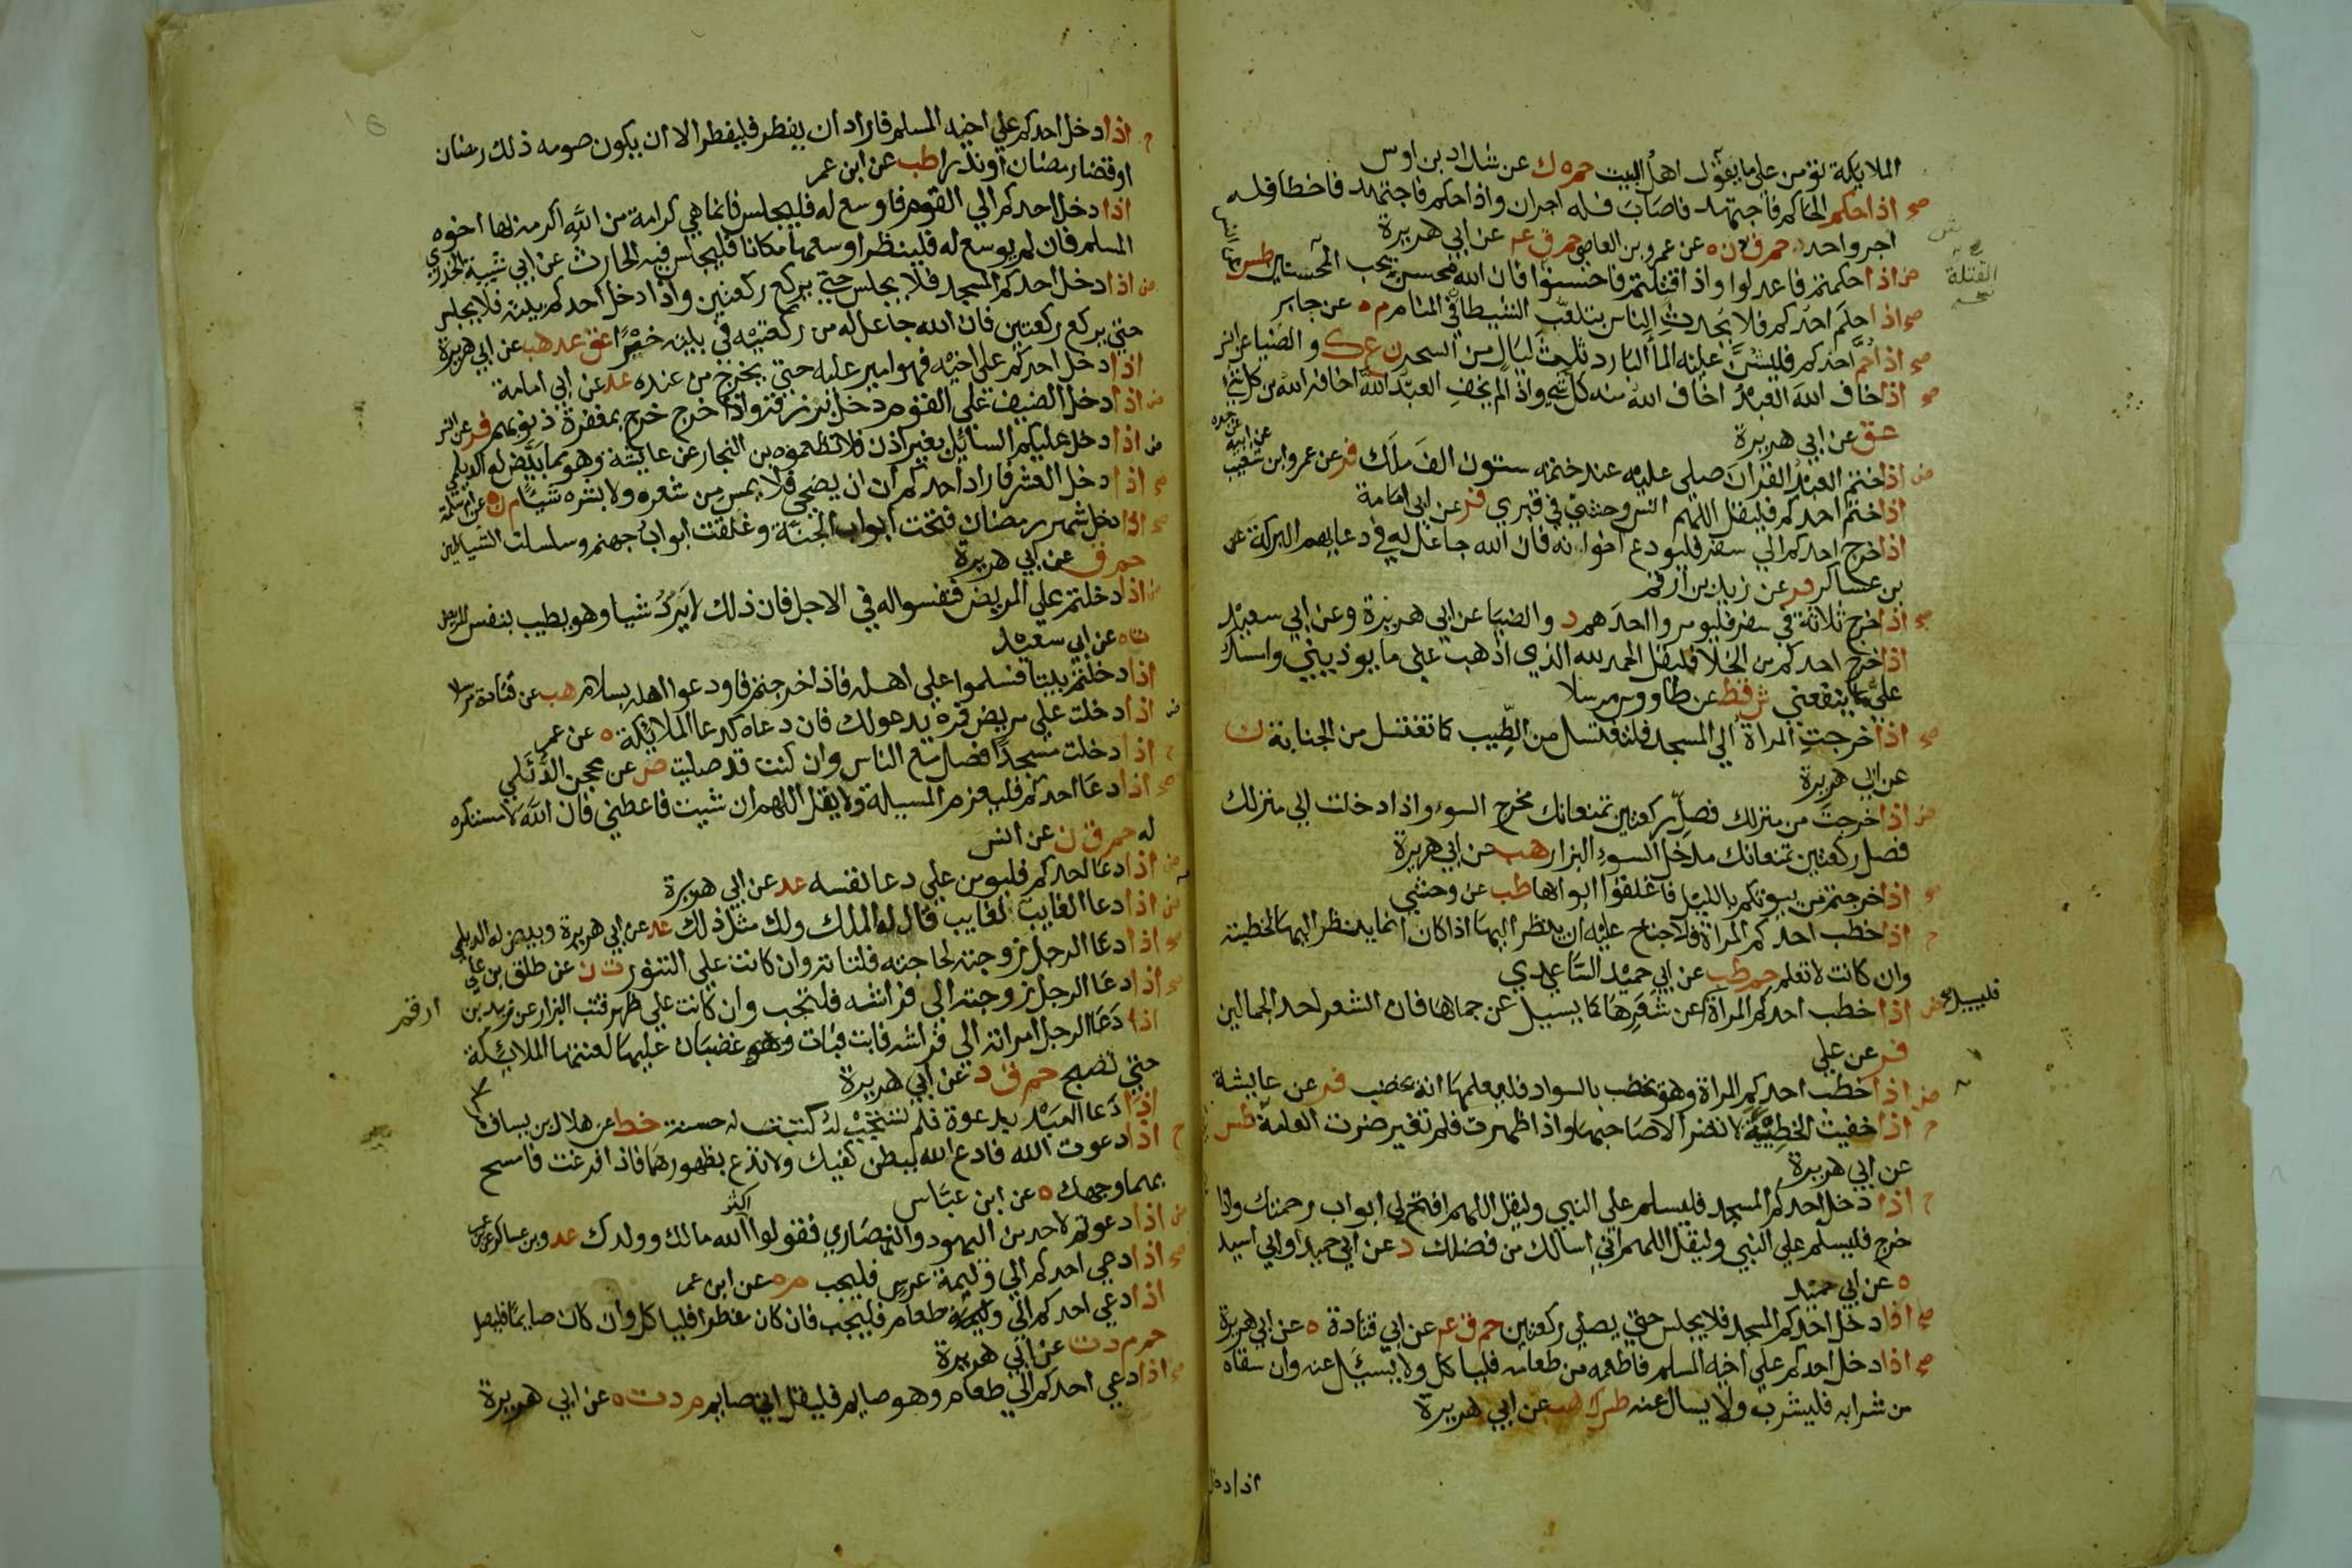 الملايكة تؤمن على ما يقول اهل البيت حم ه ك عن شداد بن اوس
صح اذا حكم الحاكم فاجتهد فاصاب فله اجران واذا حكم فاجتهد فاخطا فله
اجر واحد حم ق ن ه عن عمرو بن العاصي حم ق عه عن ابي هريرة
ض اذا حكمتم فاعدلوا واذا قتلتم فاحسنوا فان الله محسن يحب المحسنين طس
القتلة
صح اذا حلم احدكم فلا يحدث الناس بتلعب الشيطان في المنام م ه عن جابر
صح اذا حم احدكم فليشن عليه الما البارد ثلاث ليال من السحر ن ع ك والضيا عن انس
صح اذا خاف الله العبد اخاف الله منه كل شي واذا لم يخف العبد الله اخافه الله من كل شي
عق عن ابي هريرة
ض اذا ختم العبد القران صلى عليه عند ختمه ستون الف ملك فر عن عمرو ابن شعيب
عن ابيه عن جده
اذا ختم احدكم فليقل اللهم انس وحشتي في قبري فر عن ابي امامة
اذا خرج احدكم الي سفر فليودع اخوانه فان الله جاعل له في دعايهم البركة عن
بن عساكر فر عن زيد بن ارقم
صح اذا خرج ثلاثة في سفر فليومروا احدهم د والضيا عن ابي هريرة وعن ابي سعيد
اذا خرج احدكم من الخلا فليقل الحمد لله الذي اذهب عني ما يوذيني وامسك
علي ما ينفعني ش قط عن طاووس مرسلا
صح اذا خرجت المراة الي المسجد فلتغتسل من الطيب كما تغتسل من الجنابة ن
عن ابي هريرة
ض اذا خرجت من منزلك فصل ركعتين تمنعانك مخرج السوء واذا دخلت الي منزلك
فصل ركعتين تمنعانك مدخل السوء البزار هب عن ابي هريرة
صح اذا خرجتم من بيوتكم بالليل فاغلقوا ابوابها طب عن وحشي
ح اذا خطب احدكم المراة فلا جناح عليه ان ينظر اليها اذا كان انما ينظر اليها لخطبته
وان كانت لا تعلم حم طب عن ابي حميد الساعدي
ض اذا خطب احدكم المراة عن شعرها كما يسيل عن جمالها فان الشعر احد الجمالين
فليسيل
فر عن علي
ض اذا خطب احدكم المراة وهو يخضب بالسواد فليعلمها انه يخضب فر عن عايشة
ح اذا خفيت الخطيئة لا تضر الا صاحبها واذا ظهرت فلم تغير ضرت العامة طس
عن ابي هريرة
ح اذا دخل احدكم المسجد فليسلم على النبي وليقل اللهم افتح لي ابواب رحمتك واذا
خرج فليسلم علي النبي وليقل اللهم اني اسالك من فضلك د عن ابي حميد او ابي اسيد
ه عن ابي حميد
صح اذا دخل احدكم المسجد فلا يجلس حتي يصلي ركعتين حم ق عه عن ابي قتادة ه عن ابي هريرة
صح اذا دخل احدكم علي اخيه المسلم فاطعمه من طعامه فلياكل ولا يسئل عنه وان سقاه
من شرابه فليشرب ولا يسال عنه طس ك هب عن ابي هريرة
اذا دخل
ح اذا دخل احدكم علي اخيه المسلم فاراد ان يفطر فليفطر الا ان يكون صومه ذلك رمضان
او قضا رمضان او نذرا طب عن ابن عمر
اذا دخل احدكم الي القوم فاوسع له فليجلس فانما هي كرامة من الله اكرمه بها اخوه
المسلم فان لم يوسع له فلينظر اوسعها مكانا فليجلس فيه الحارث عن ابي شيبة الخدري
ض اذا دخل احدكم المسجد فلا يجلس حتي يركع ركعتين واذا دخل احدكم بيته فلا يجلس
حتي يركع ركعتين فان الله جاعل له من ركعتيه في بيته خيرا عق عد هب عن ابي هريرة
اذا دخل احدكم على اخيه فهو امير عليه حتي يخرج من عنده عد عن ابي امامة
ض اذا دخل الضيف علي القوم دخل برزقه واذا خرج خرج بمغفرة ذنوبهم فر عن انس
ض اذا دخل عليكم السائل بغير اذن فلا تطعموه بن النجار عن عايشة وهو مما بيض له الديلمي
صح اذا دخل العشر فاراد احدكم ان يضحي فلا يمس من شعره ولا بشره شيا م ن ه عن ام سلمة
صح اذا دخل شهر رمضان فتحت ابواب الجنة وغلقت ابواب جهنم وسلسلت الشياطين
حم ق عن ابي هريرة
ض اذا دخلتم علي المريض فنفسوا له في الاجل فان ذلك لا يرد شيا وهو يطيب بنفس المريض
ت ه عن ابي سعيد
اذا دخلتم بيتا فسلموا علي اهله فاذا خرجتم فاودعوا اهله بسلام هب عن قتادة مرسلا
ض اذا دخلت على مريض فمره يدعو لك فان دعاه كدعا الملائكة ه عن عمر
ح اذا دخلت مسجدا فصل مع الناس وان كنت قد صليت ض عن محجن الدئلي
صح اذا دعا احدكم فليعزم المسيلة ولا يقل اللهم ان شيت فاعطني فان الله لا مستكره
له حم ق ن عن انس
ض اذا دعا احدكم فليومن علي دعا نفسه عد عن ابي هريرة
ض اذا دعا الغايب لغايب قال له الملك ولك مثل ذلك عد عن ابي هريرة وبيض له الديلمي
صح اذا دعا الرجل زوجته لحاجته فلتاته وان كانت علي التنور ت ن عن طلق بن علي
صح اذا دعا الرجل زوجته الي فراشه فلتجب وان كانت علي ظهر قتب البزار عن زيد بن
ارقم
اذا دعا الرجل امراته الي فراشه فابت فبات وهو غضبان عليها لعنتها الملائكة
حتي تصبح حم ق د عن ابي هريرة
اذا دعا العبد بدعوة فلم تستجب له كتبت له حسنة خط عن هلال بن يساف
ح اذا دعوت الله فادع الله ببطن كفيك ولا تدع بظهورهما فاذا افرغت فامسح
بهما وجهك ه عن ابن عباس
ض اذا دعوتم لاحد من اليهود والنصاري فقولوا اكثر الله مالك وولدك عد وبن عساكر عن
صح اذا دعي احدكم الي وليمة عرس فليجب م ه عن ابن عمر
اذا دعي احدكم الي وليمة طعام فليجب فان كان مفطرا فلياكل وان كان صايما فليصل
حم م د ت عن ابي هريرة
صح اذا دعي احدكم الي طعام وهو صايم فليقل اني صايم م د ت ه عن ابي هريرة